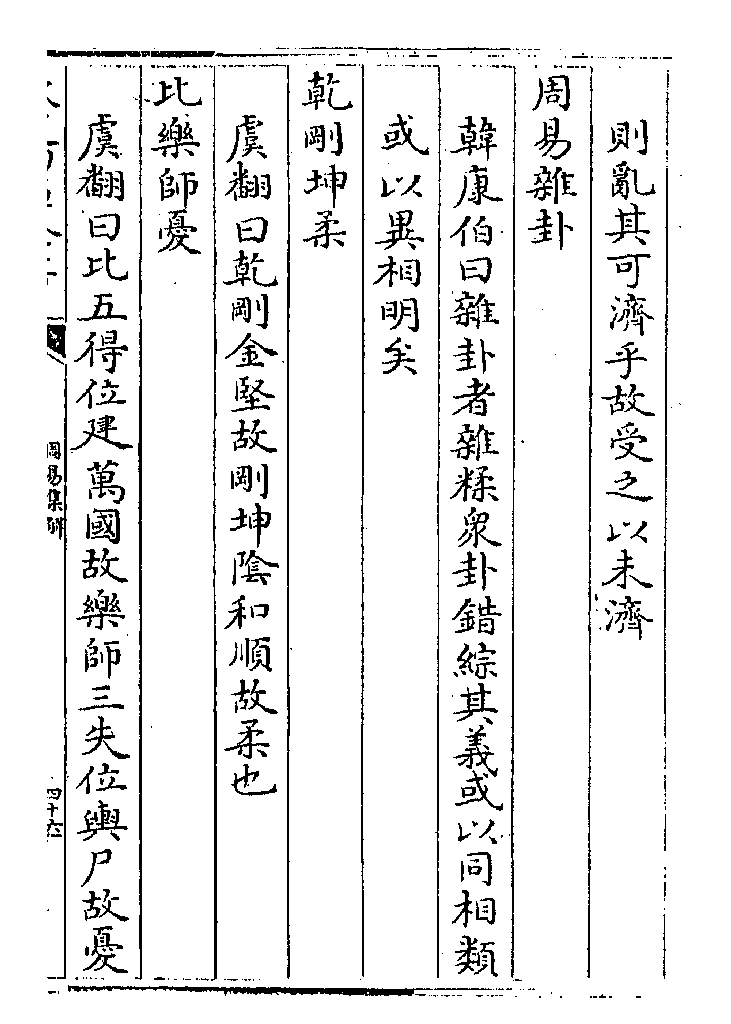 則亂其可濟乎故受之以未濟
周易雜卦
韓康伯曰雜卦者雜糅衆卦錯綜其義或以同相類
或以異相明矣
乾剛坤柔
虞翻曰乾剛金堅故剛坤陰和順故柔也
比樂師憂
虞翻曰比五得位建萬國故樂師三失位輿尸故憂
周易集解
四十六